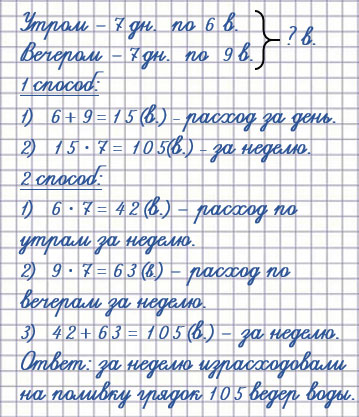 Утром – 7 дн. по 6 в.
Вечером – 7 дн. по 9 в. } ? в.
1 способ:
1) 6 + 9 = 15 (в.) – расход за день.
2) 15 · 7 = 105 (в.) – за неделю.
2 способ:
1) 6 · 7 = 42 (в.) – расход по
утрам за неделю.
2) 9 · 7 = 63 (в.) – расход по
вечерам за неделю.
3) 42 + 63 = 105 (в.) – за неделю.
Ответ: за неделю израсходовали
на поливку грядок 105 ведер воды.